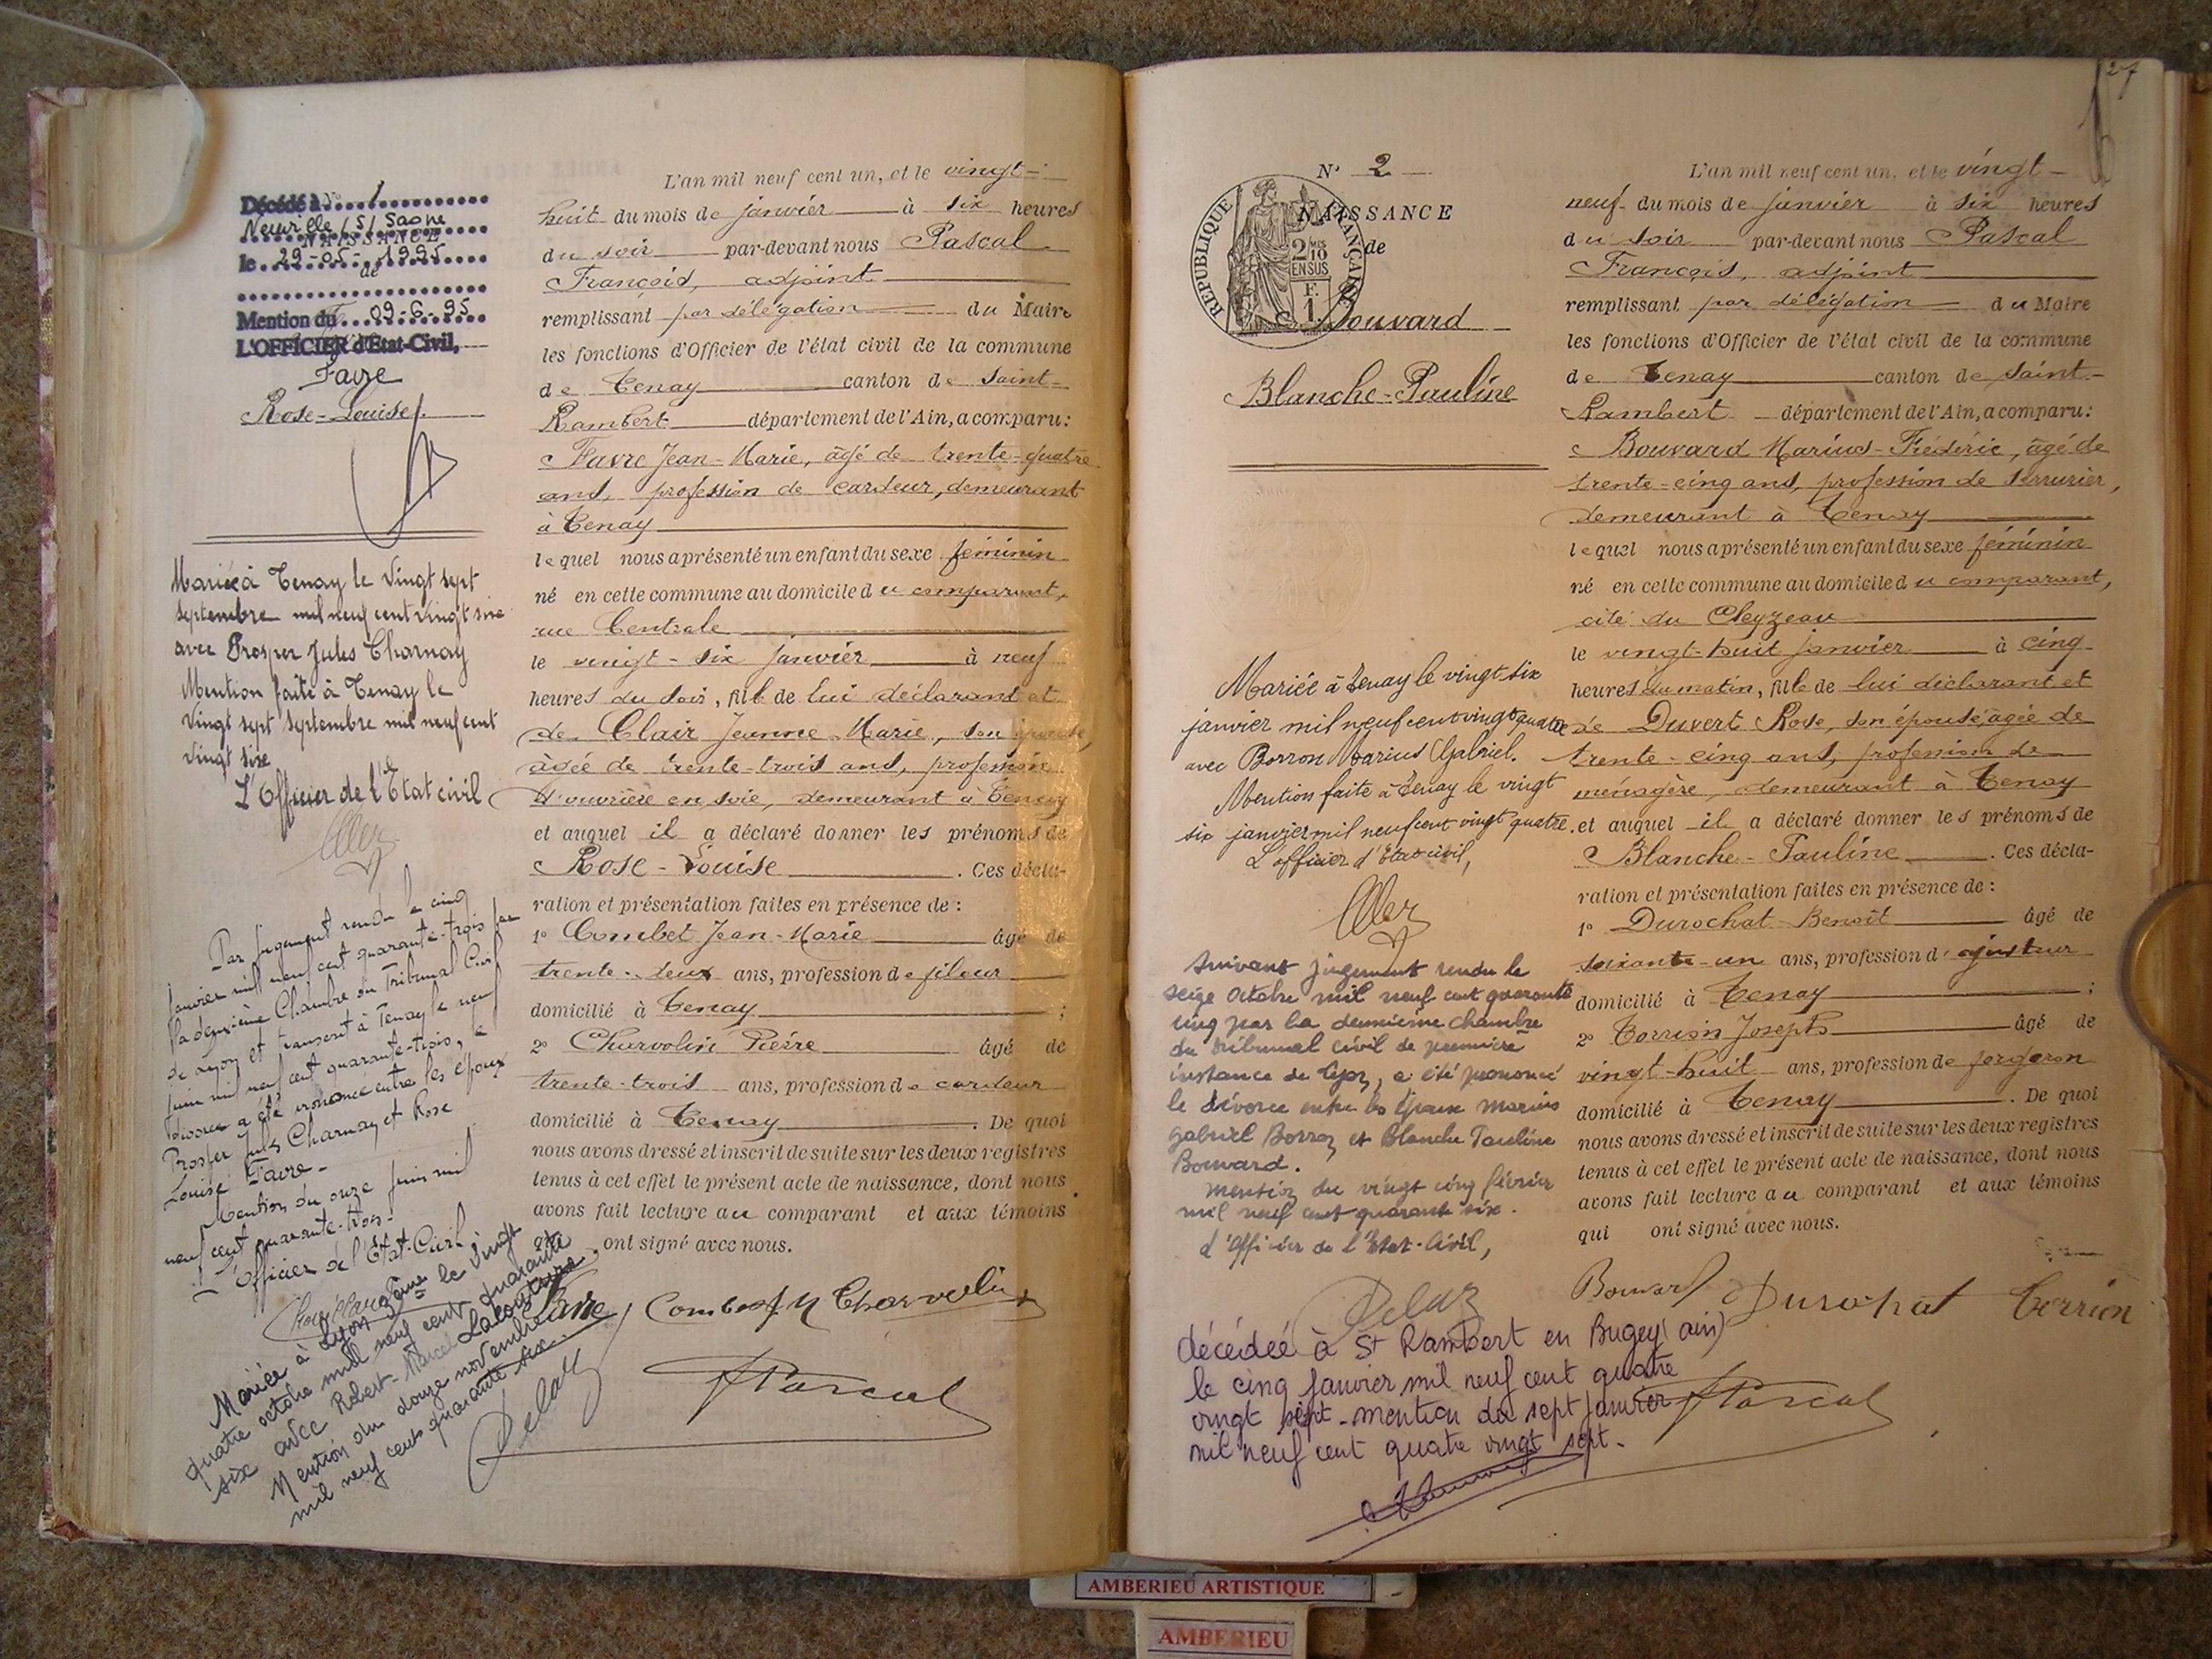 Décédé à N° 1
Neuville /S/ Saone
NAISSANCE
le 29-05-1995
de
Mention du 09-6-95
L'OFFICIER d'Etat-Civil,
Favre
Rose-Louise
Mariée à Tenay le Vingt sept
septembre mil neuf cent vingt six
avec Prosper Jules Charnay
Mention faite à Tenay le
vingt sept septembre mil neuf cent
vingt six
L'Officier de l'Etat civil
Par jugement rendu le cinq
janvier mil neuf cent quarante-trois par
la deuxième Chambre du Tribunal Civil
de Lyon et transcrit à Tenay le neuf
juin mil neuf cent quarante-trois, le
divorce a été prononcé entre les époux
Prosper Jules Charnay et Rose
Louise Favre -
Mention du onze juin mil
neuf cent quarante-trois -
L'Officier de l'Etat-Civil
Mariée à Lyon le vingt
quatre octobre mil neuf cent quarante
six avec Robert-Marcel Lacouture
Mention du douze novembre
mil neuf cent quarante six.
Delaz
L'an mil neuf cent un, et le vingt-
huit du mois de janvier à six heures
du soir par-devant nous Pascal
François, adjoint
remplissant par délégation du Maire
les fonctions d'Officier de l'état civil de la commune
de Tenay canton de Saint-
Rambert département de l'Ain, a comparu:
Favre Jean-Marie, âgé de trente-quatre
ans, profession de cardeur, demeurant
à Tenay
lequel nous a présenté un enfant du sexe féminin
né en cette commune au domicile du comparant,
rue Centrale
le vingt-six janvier à neuf
heures du soir, fille de lui déclarant et
de Clair Jeanne-Marie, son épouse,
agée de trente-trois ans, profession
d'ouvrière en soie, demeurant à Tenay
et auquel il a déclaré donner les prénoms de
Rose-Louise. Ces décla-
ration et présentation faites en présence de :
1° Combet Jean-Marie âgé de
trente-deux ans, profession de fileur
domicilié à Tenay ;
2° Charvolin Pierre âgé de
trente-trois ans, profession de cardeur
domicilié à Tenay. De quoi
nous avons dressé et inscrit de suite sur les deux registres
tenus à cet effet le présent acte de naissance, dont nous
avons fait lecture au comparant et aux témoins
qui ont signé avec nous.
Favre Combet J M Charvolin
Pascal
27
N° 2
NAISSANCE
REPUBLIQUE FRANÇAISE
2/10 EN SUS
F. 1
de
Bouvard
Blanche-Pauline
Mariée à Tenay le vingt six
janvier mil neuf cent vingt quatre
avec Borron Marius Gabriel.
Mention faite à Tenay le vingt
six janvier mil neuf cent vingt quatre.
L'officier d'Etat civil,
Suivant jugement rendu le
seize octobre mil neuf cent quarante
cinq par la deuxième chambre
du tribunal civil de première
instance de Lyon, a été prononcé
le divorce entre les époux Marius
Gabriel Borron et Blanche Pauline
Bouvard.
Mention du vingt cinq février
mil neuf cent quarante six.
L'Officier de l'Etat-Civil,
Delaz
décédée à St Rambert en Bugey (ain)
le cinq janvier mil neuf cent quatre
vingt sept - mention du sept janvier
mil neuf cent quatre vingt sept.
L'an mil neuf cent un, et le vingt-
neuf du mois de janvier à six heures
du soir par-devant nous Pascal
François, adjoint
remplissant par délégation du Maire
les fonctions d'Officier de l'état civil de la commune
de Tenay canton de Saint-
Rambert département de l'Ain, a comparu:
Bouvard Marius-Frédéric, âgé de
trente-cinq ans, profession de serrurier,
demeurant à Tenay
lequel nous a présenté un enfant du sexe féminin
né en cette commune au domicile du comparant,
cité du Cleyzeau
le vingt-huit janvier à cinq
heures du matin, fille de lui déclarant et
de Duvert Rose, son épouse, agée de
trente-cinq ans, profession de
ménagère, demeurant à Tenay
et auquel il a déclaré donner les prénoms de
Blanche-Pauline. Ces décla-
ration et présentation faites en présence de :
1° Durochat Benoît âgé de
soixante-un ans, profession d'ajusteur
domicilié à Tenay ;
2° Terrion Joseph âgé de
vingt-huit ans, profession de forgeron
domicilié à Tenay. De quoi
nous avons dressé et inscrit de suite sur les deux registres
tenus à cet effet le présent acte de naissance, dont nous
avons fait lecture au comparant et aux témoins
qui ont signé avec nous.
Bouvard Durochat Terrion
Pascal
AMBERIEU ARTISTIQUE
AMBERIEU